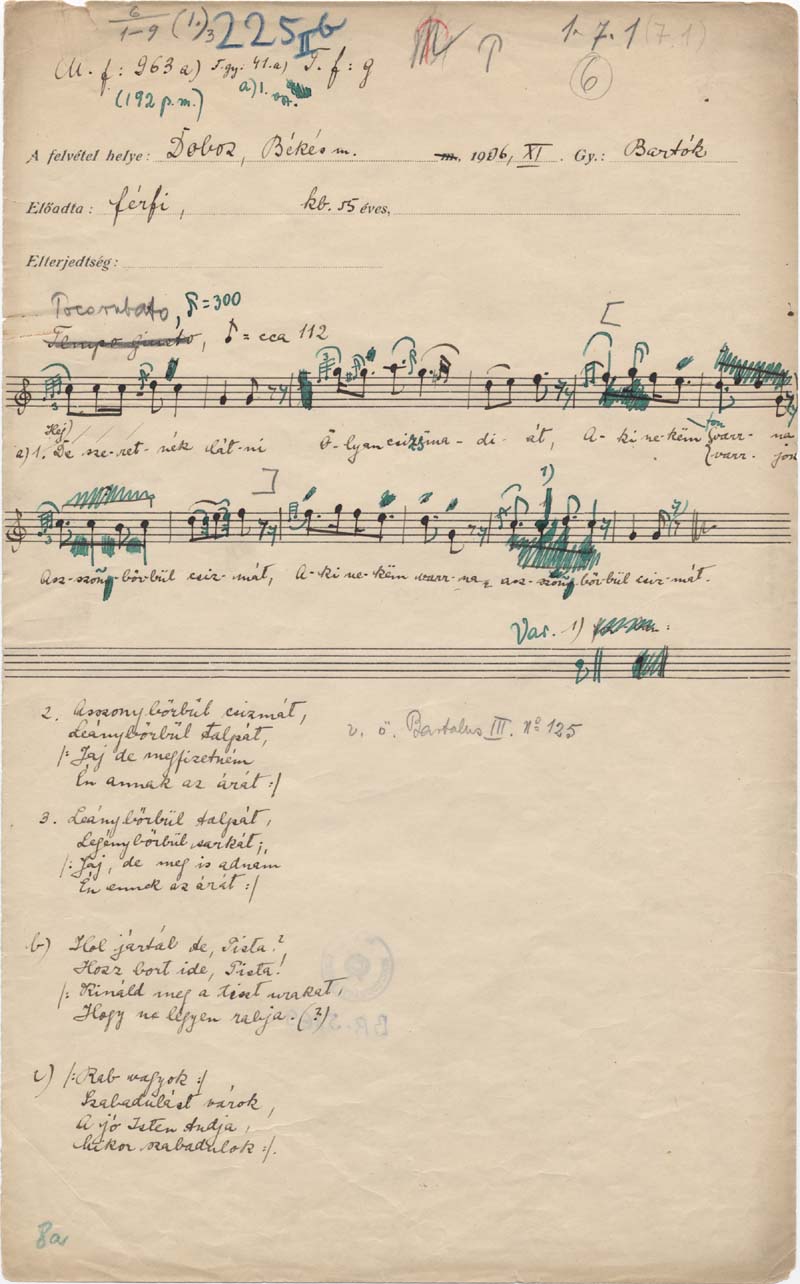 6
1-9 (1.)3 225 II b
1.7.1 (7.1)
6
M. f: 963 a) T. f: g
(192 p.m.) a) 1.
A felvétel helye: Doboz, Békés m. m. 1906, XI. Gy.: Bartók
Előadta: férfi, kb. 55 éves,
Elterjedtség:
Poco rubato, ♪=300
Tempo giusto, ♪ = cca 112
Hej)
a) 1. De sze-ret-nék lát-ni O-lyan csizma-di-át, A-ki ne-këm varr-na
varr-jon
Asz-szony-bőr-bűl csiz-mát, A-ki ne-këm varr-na asz-szony-bőrbűl csiz-mát.
Var. 1)
2. Asszonybőrbűl csizmát,
Leánybőrbűl talpát,
/: Jaj de megfizetném
Én annak az árát :/
v. ö. Bartalus III. No 125
3. Leánybőrbűl talpát,
Legénybőrbűl sarkát;
/: Jaj, de meg is adnam
Én ennek az árát :/
b) Hol jártál te, Pista?
Hosz bort ide, Pista!
/: Kináld meg a tiszt urakat,
Hogy ne legyen rabja. (?)
c) /: Rab vagyok :/
Szabadulást várok,
A jó Isten tudja,
Mikor szabadulok :/.
8a